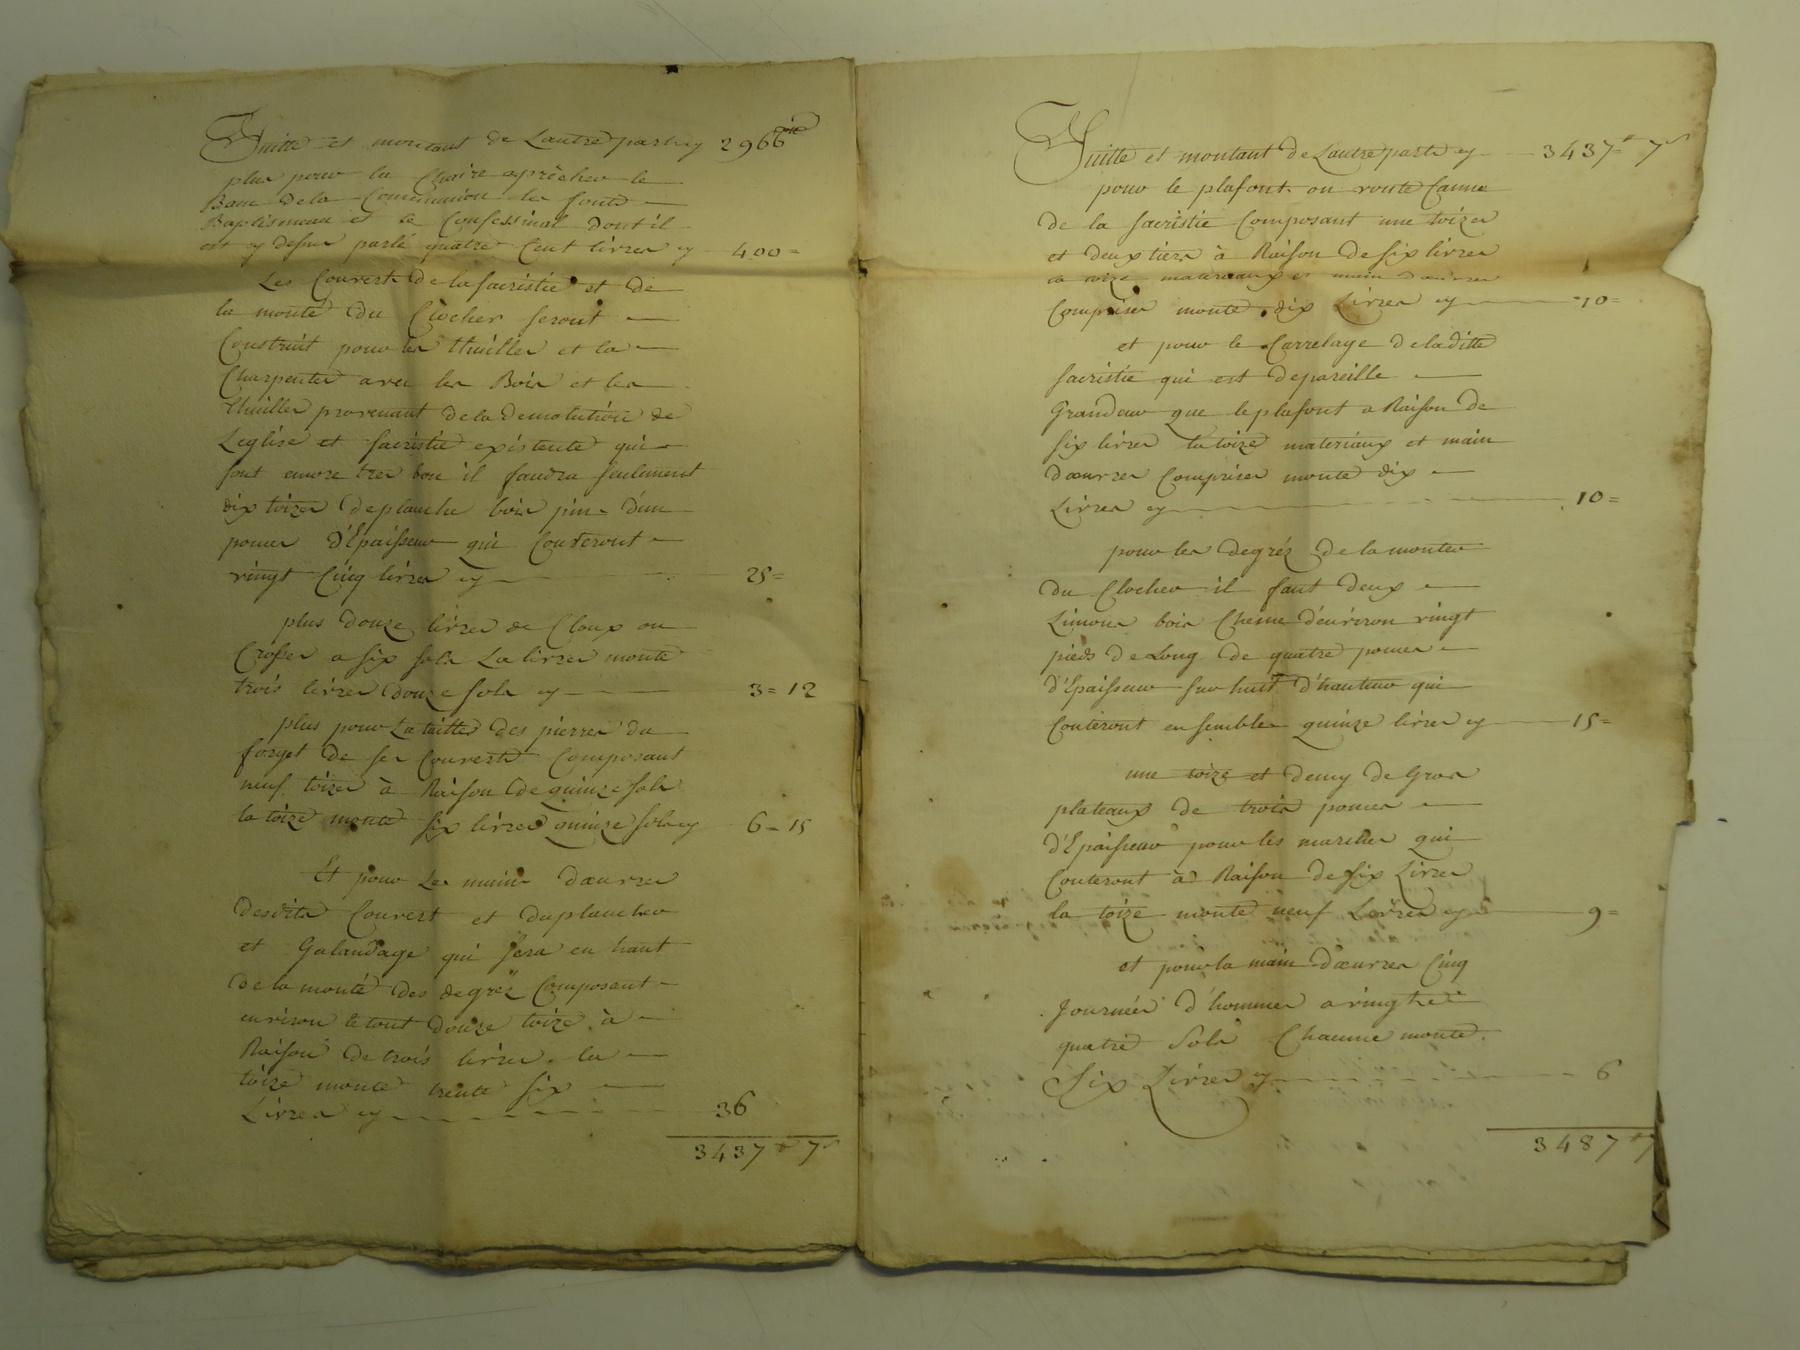 Suitte et montant de Lautre part cy 2966tt
plus pour la Chaire aprêcher le
Banc dela Communion les fonds
Baptismeau et le Confessinal dont il
est cy desus parlé quatre Cent livres cy 400=
Les Couvert de la sacristie et de
la monté du Clocher seront
Construit pour les thuilles et la
Charpente avec les Bois et les
thuilles provenant dela demolution de
Leglise et sacristie existente qui
sont encore tres bon il faudra seulement
dix toizes deplanche bois pin d'un
pouces d'Epaisseur qui Couteront
vingt Cinq livres cy 25=
plus douze livres de Cloux ou
Crosses a six sols La livres monte
trois livres douze sols cy 3=12
plus pour La taille des pierres du
forget de ses Couverts Composant
neuf toizes à Raison de quinze sols
la toize monte six livres quinze sols cy 6-15
Et pour Les main d'œuvres
desdits Couvert et du plancher
et Galandage qui sera en haut
de la monté des degrez Composant
environ le tout douze toize à
Raison de trois livres la
toize monte trente six
Livres cy 36
3437tt 7s
Suitte et montant de Lautre part cy 3437tt 7s
pour le plafont ou voute Canne
de la sacristie Composant une toizes
et deux tiers à Raison de six livres
la toize materiaux et main d'œuvres
Comprises monte dix Livres cy 10=
et pour le Carrelage de laditte
sacristie qui est depareille
Grandeur que le plafont a Raison de
six livres la toize materiaux et main
d'œuvres Comprises monte dix
Livres cy 10=
pour les degréz de la montée
du Clocher il faut deux
Limons bois Chene d'environ vingt
pieds de Long de quatre pouces
d'Epaisseur sur huit d'hauteur qui
Couteront ensembles quinze livres cy 15=
une toize et demy de Gros
plateaux de trois pouces
d'Epaisseur pour les marches qui
Couteront à Raison de six Livres
la toize monte neuf Livres cy 9=
et pour la main d'œuvres Cinq
Journées d'hommes a vingt
quatre Sols Chacune monte
Six Livres cy 6
3487tt 7